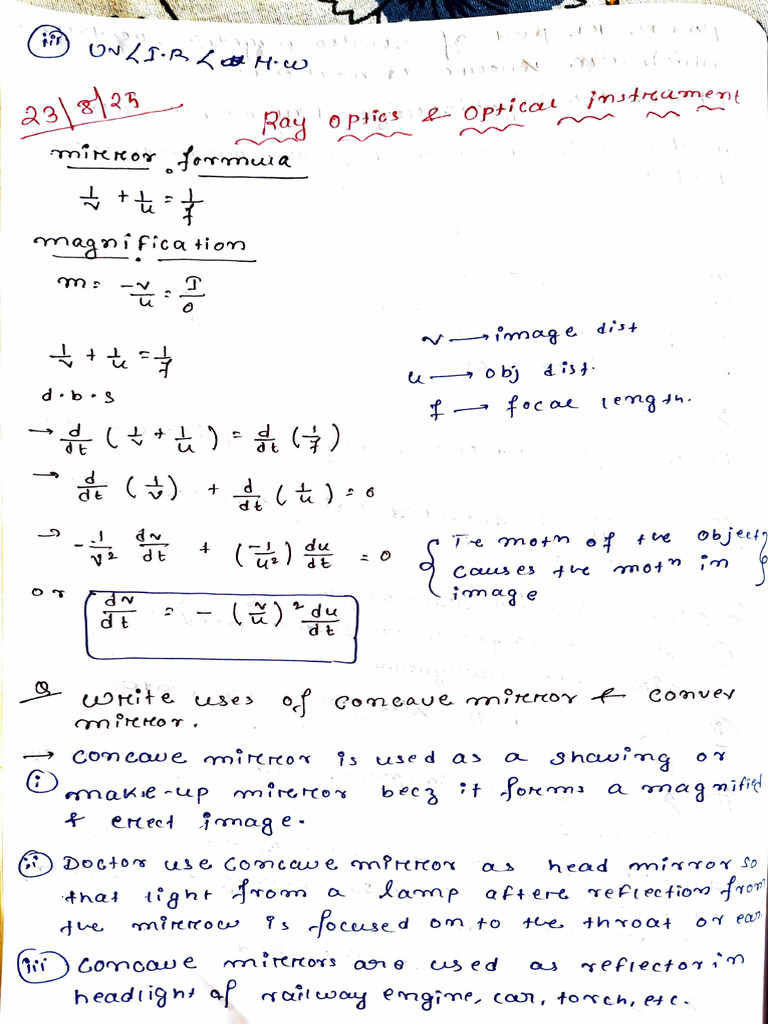 (iii) UV < I.R < M.W
23/8/25
Ray optics & optical instrument
mirror formula
1/v + 1/u = 1/f
magnification
m = -v/u = I/O
1/v + 1/u = 1/f
d.b.s
v → image dist
u → obj dist.
f → focal length.
→ d/dt (1/v + 1/u) = d/dt (1/f)
→ d/dt (1/v) + d/dt (1/u) = 0
→ -1/v² dv/dt + (-1/u²) du/dt = 0
or dv/dt = - (v/u)² du/dt
{ Te motn of the object
causes the motn in
image }
Q Write uses of concave mirror & convex
mirror.
→ concave mirror is used as a shaving or
(i) make-up mirror becz it forms a magnified
& erect image.
(ii) Doctor use concave mirror as head mirror so
that light from a lamp after reflection from
the mirror is focused on to the throat or ear
(iii) concave mirrors are used as reflector in
headlight of railway engine, car, torch, etc.